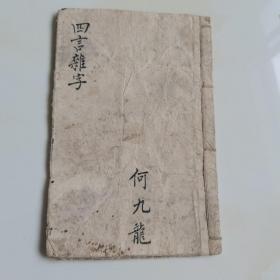 四言雜字
何九龍